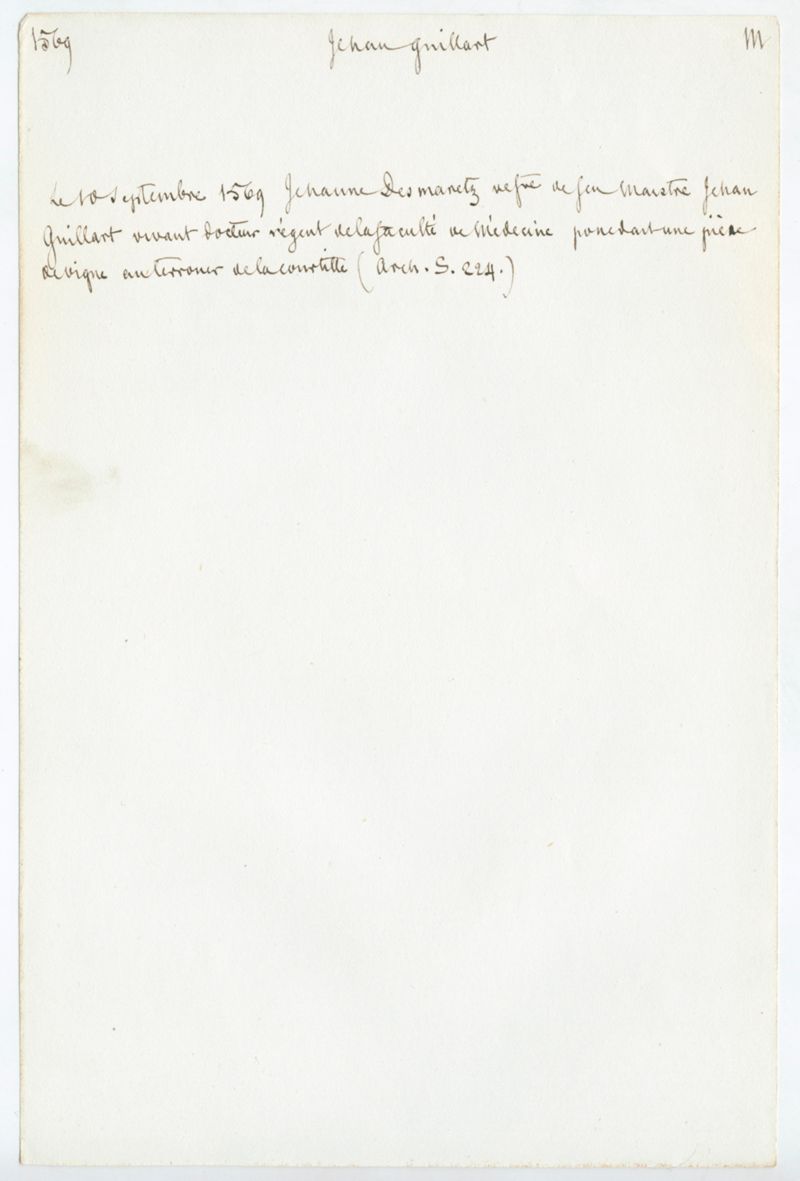 1569 Jehan Guillart M
Le 10 Septembre 1569 Jehanne Desmaretz vefve de feu Maistre Jehan
Guillart vivant docteur régent de la faculté de Médecine possedait une pièce
de vigne au terrouer de la courtille (Arch. S. 224.)